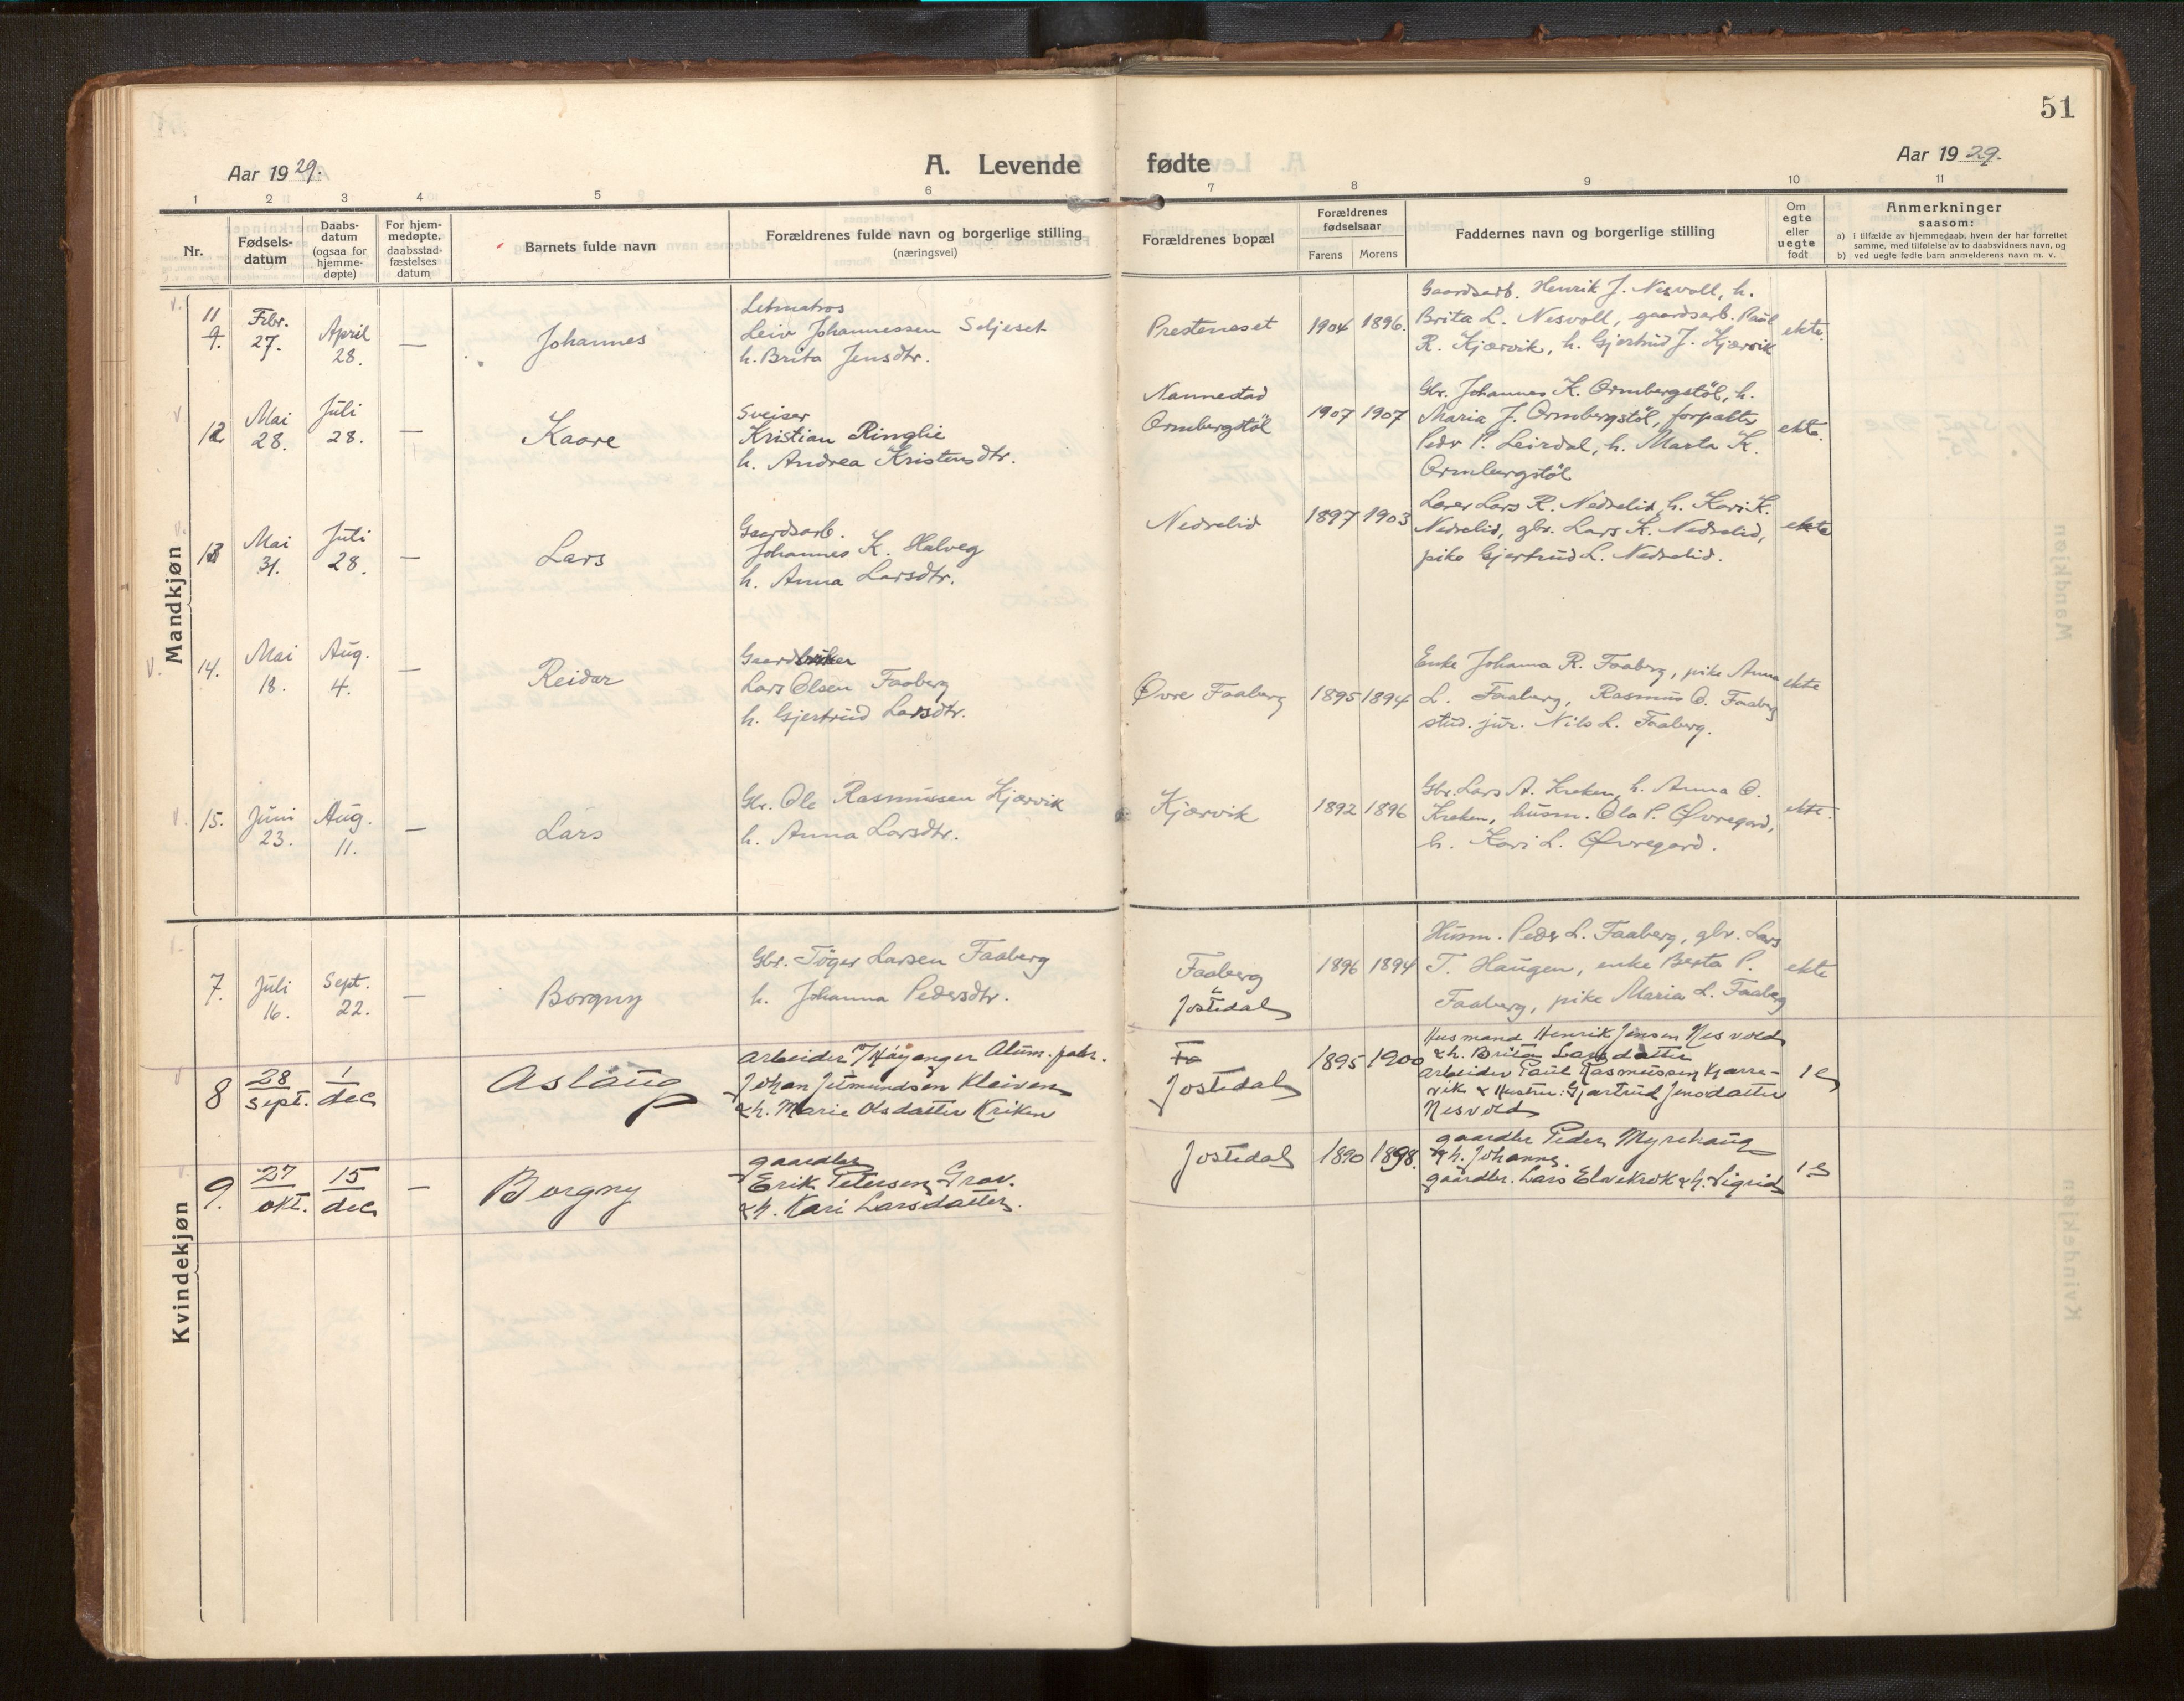 51
Aar 1929.
A. Levende fødte
Aar 1929.
1 2 3 4 5 6 7 8 9 10 11
Nr.
Fødsels-
datum
Daabs-
datum
(ogsaa for
hjemme-
døpte)
For hjem-
medøpte,
daabsstad-
fæstelses
datum
Barnets fulde navn
Forældrenes fulde navn og borgerlige stilling
(næringsvei)
Forældrenes bopæl
Forældrenes
fødselsaar
Farens Morens
Faddernes navn og borgerlige stilling
Om
egte
eller
uegte
født
Anmerkninger
saasom:
a) i tilfælde av hjemmedaab, hvem der har forrettet
samme, med tilføielse av to daabsvidners navn, og
b) ved uegte fødte barn anmelderens navn m. v.
Mandkjøn
11
Febr.
27.
April
28.
—
Johannes
Letmatros
Leiv Johannessen Seljeset
h. Brita Jensdtr.
Presteneset
1904 1896.
Gaardsarb. Henrik J. Nesvoll, h.
Brita L. Nesvoll, gaardsarb. Paul
R. Kjærvik, h. Gjertrud J. Kjærvik
ekte.
12
Mai
28.
Juli
28.
—
Kaare
Sveiser
Kristian Ringlie
h. Andrea Kristensdtr.
Nannestad
Ormbergstöl
1907 1907
Gbr. Johannes K. Ormbergstöl, h.
Maria J. Ormbergstöl, forpakter
Peder P. Leirdal, h. Marta K.
Ormbergstöl
ekte.
13
Mai
31.
Juli
28.
—
Lars
Gaardsarb.
Johannes K. Halveg
h. Anna Larsdtr.
Nedrelid
1897 1903
Lærer Lars R. Nedrelid, h. Kari K.
Nedrelid, gbr. Lars K. Nedrelid,
pike Gjertrud L. Nedrelid.
ekte
14.
Mai
18.
Aug.
4.
—
Reidar
Gaardbruker
Lars Olsen Faaberg
h. Gjertrud Larsdtr.
Øvre Faaberg
1895 1894
Enke Johanna R. Faaberg, pike Anna
L. Faaberg, Rasmus O. Faaberg
stud. jur. Nils L. Faaberg.
ekte
15.
Juni
23.
Aug.
11.
—
Lars
Gbr. Ole Rasmussen Kjærvik
h. Anna Larsdtr.
Kjærvik
1892 1896
Gbr. Lars A. Kreken, h. Anna O.
Kreken, husm. Ola P. Øvregard,
h. Kari L. Øvregard.
ekte.
Kvindekjøn
7.
Juli
16.
Sept.
22.
—
Borgny
Gbr. Töger Larsen Faaberg
h. Johanna Pedersdtr.
Faaberg
i
Jostedal
1896 1894
Husm. Peder L. Faaberg, gbr. Lars
T. Haugen, enke Berta P.
Faaberg, pike Maria L. Faaberg
ekte
8
28
sept.
1
dec
Aslaug
Arbeider v/Høyanger Alum. fabr.
Johan Jetmundsen Kleiven
& h. Marie Olsdatter Kriken
Fa
Jostedal
1895 1900
Husmand Henrik Jensen Nesvold
& h. Brita Larsdatter
Arbeider Paul Rasmussen Kjærre-
vik & Hustru: Gjertrud Jensdatter
Nesvold
9.
27
okt.
15
dec
—
Borgny
gaardbr
Erik Petersen Grov.
& h. Kari Larsdatter.
Jostedal
1890 1898.
gaardbr Peder Myrehaug
& h. Johanne.
gaardbr. Lars Elvekrok & h. Sigrid